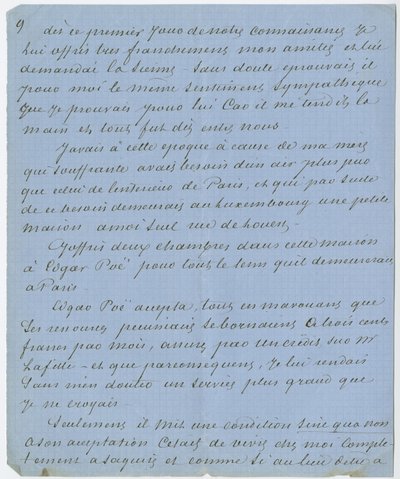 9
dès ce premier jour de notre connaissance je
lui offris tres franchement mon amitié et lui
demandai la sienne Sans doute eprouvait il
pour moi le même sentiment sympathique
que je prouvais pour lui Car il me tendit la
main et tout fut dit entre nous.
J'avais à cette epoque à cause de ma mère
qui souffrante avait besoin d'un air plus pur
que celui de l'interieur de Paris, et qui par suite
de ce besoin demeurait au Luxembourg une petite
maison a moi seul rue de l'ouest.
J'offris deux chambres dans cette maison
à Edgar Poë pour tout le tems qu'il demeurerait
a Paris.
Edgar Poë accepta, tout en m'avouant que
Ses pecuniaires se bornaient à trois cents
francs par mois, assurés par un crédit sur Mr
Lafitte - et que par consequent, je lui rendais
Sans m'en douter un service plus grand que
je ne croyais.
Seulement il mit une condition sine qua non
a son acceptation C'etait de vivre chez moi complè-
tement a sa guise et comme si au lieu d'être a